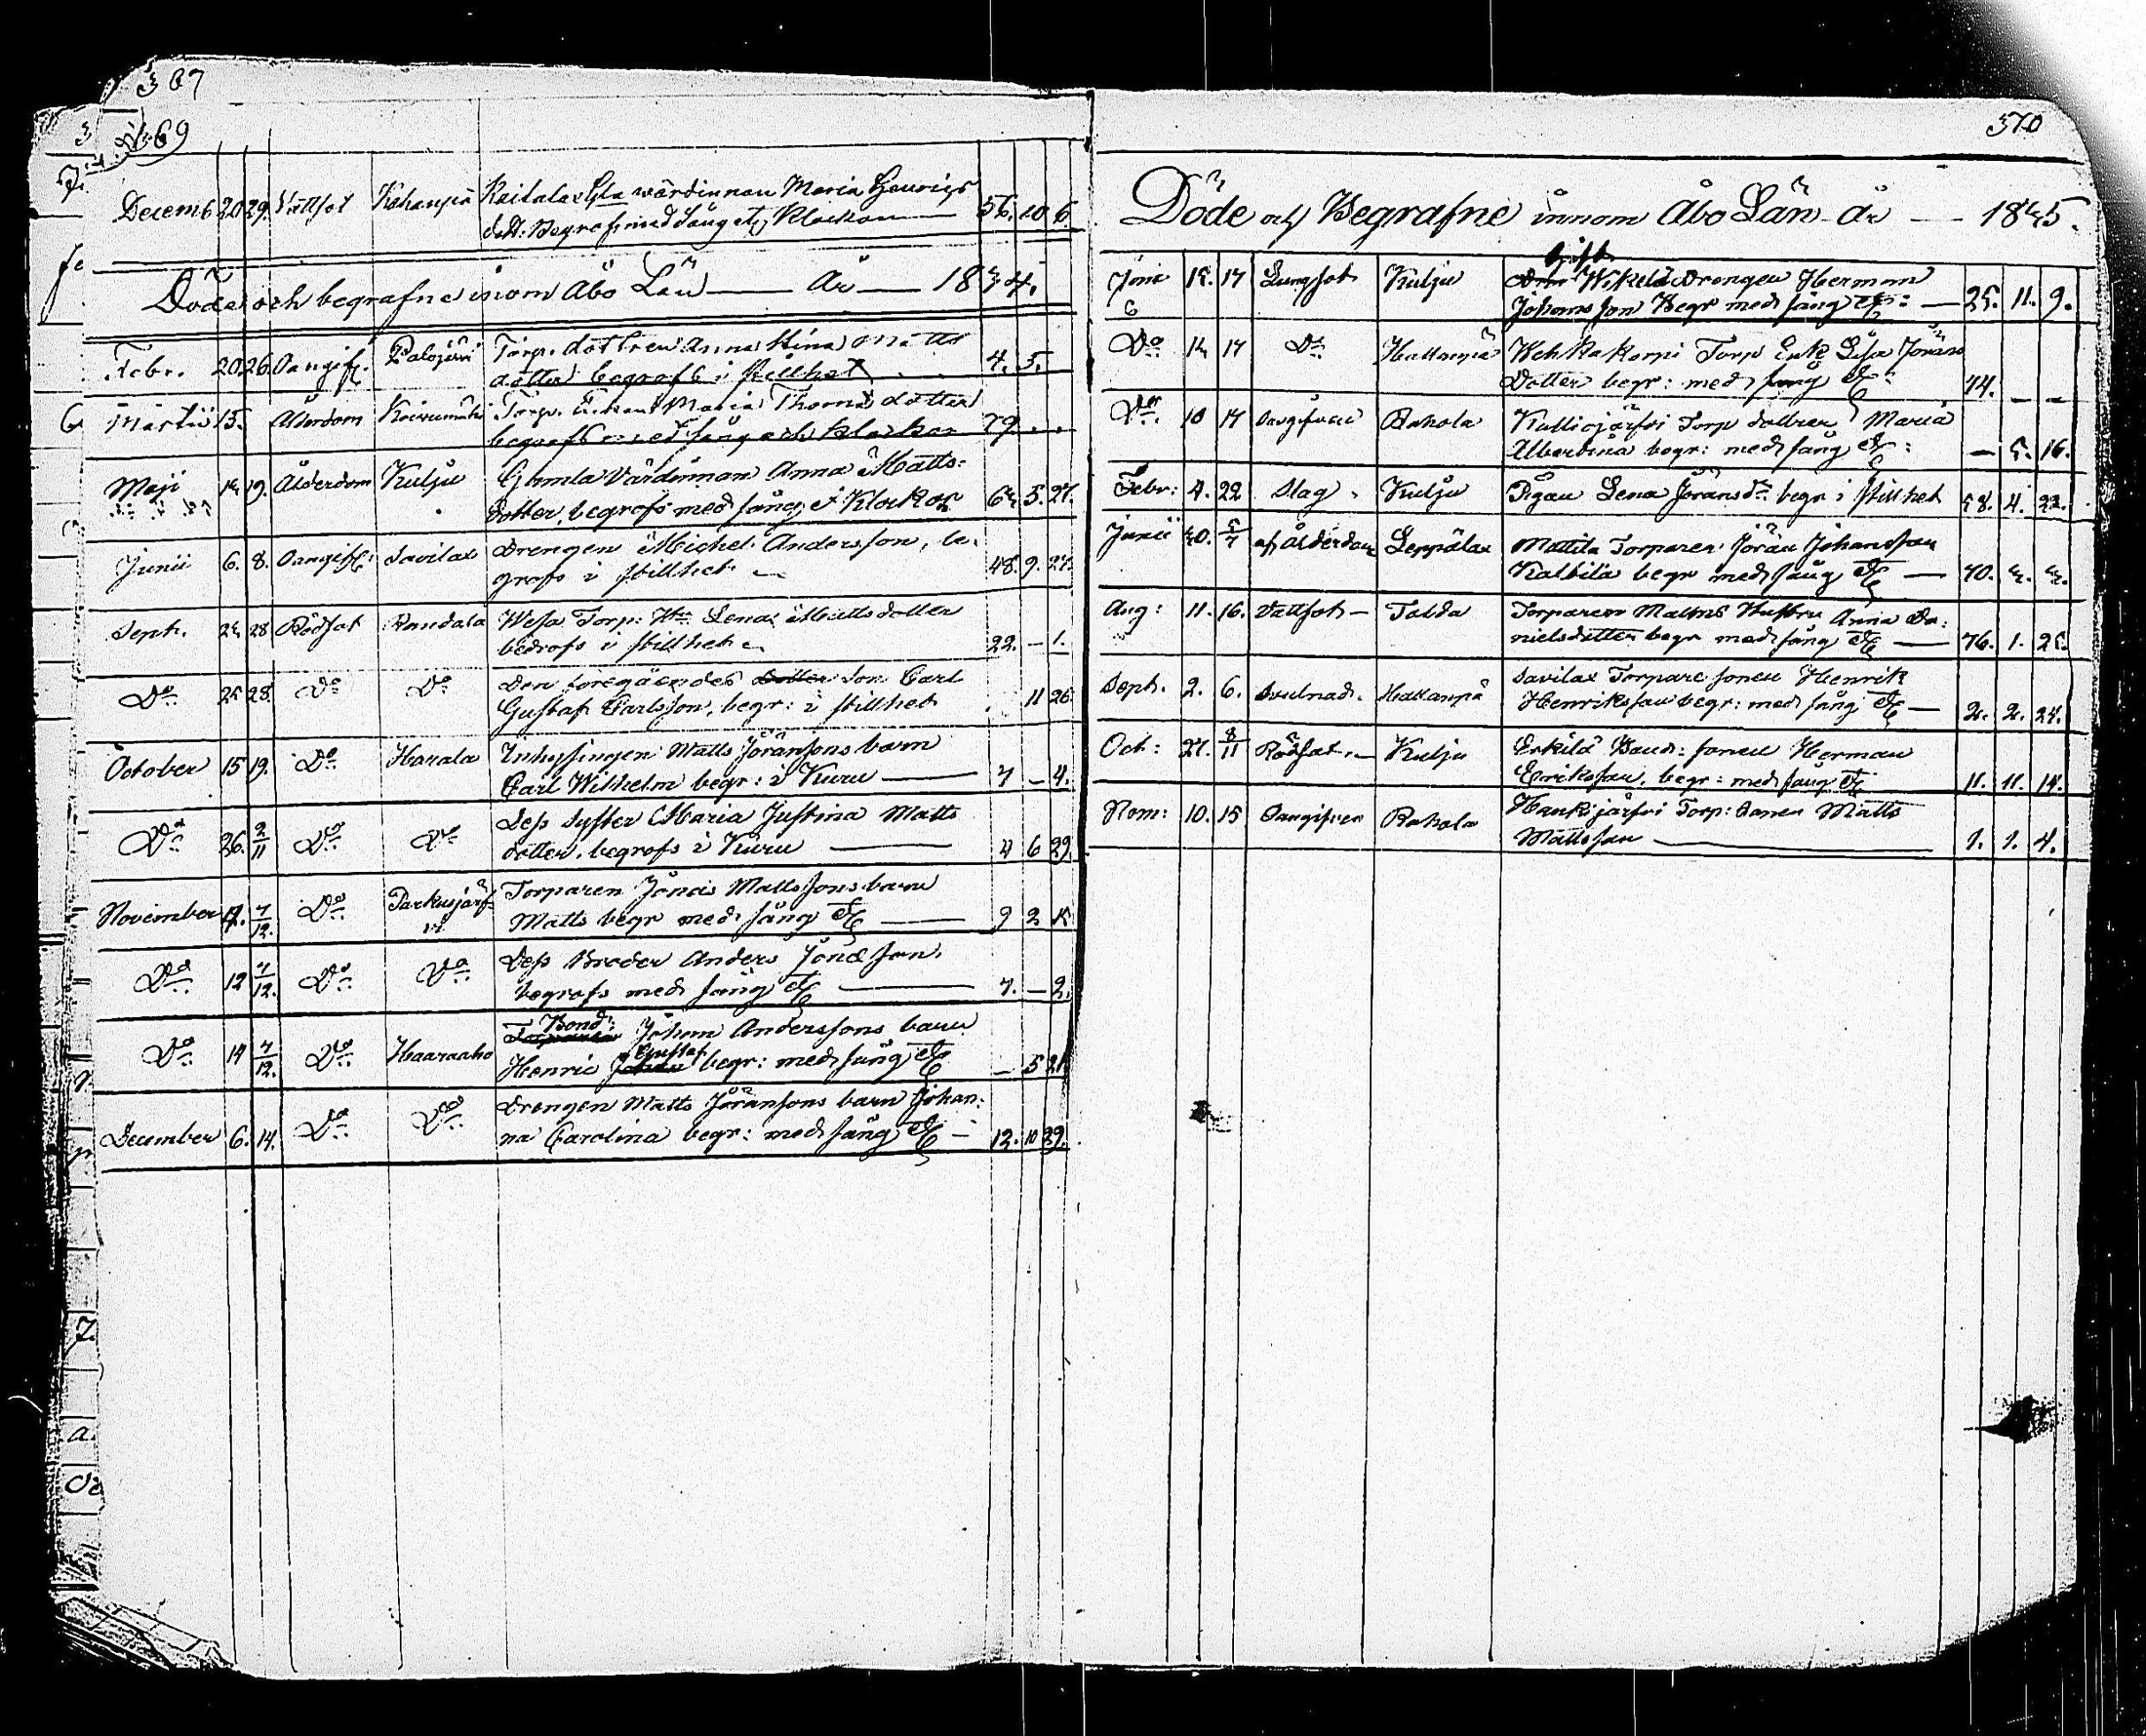 367
369
Decemb 20 29. Vattsot Kahanpä Kaitalax Gla wärdinnan Maria Henrics
dott: Begrafs med sång etc, Klockan — 56. 10 6.
Döde och begrafne inom Åbo Län — År — 1844.
Febr. 20 26. Oangifl. Palojärvi Torp. dottren Anna Stina Matts
dotter begrafs i stillhet 4. 5.
Martii 15. Ålderdom Torp. Enkan Maria Thomæ dotter
begrafs med sång och klockor 79
Maji 14 19. Ålderdom Kulju Gamla Värdinnan Anna Matts:
dotter, begrafs med sång & Klockor 64 5. 27.
Junii 6. 8. Oangifl: Savilax Drengen Michel Andersson, be-
grafs i stillhet 48. 9. 27.
Sept. 24 28 Rödsot Randala Wesa Torp: Hu Lena Mattsdotter
begrafs i stillhet 22. — 1.
Do 25 28. Do Do Den föregåendes Dotter Son Carl
Gustaf Carlsson, begr: i stillhet . 11 26
October 15 19. Do Harala Inhysingen Matts Jöransons barn
Carl Wilhelm begr: i Kuru — 7 — 4.
Do 26. 2/11 Do Do Dess Syster Maria Justina Matts
dotter, begrafs i Kuru — 4 6 29.
November 7/12. Do Parkusjärf- Torparen Jonas Mattssons barn
vi Matts begr med sång etc — 9 2
Do 12 7/12. Do Do Dess Broder Anders Jonæ Son.
begrafs med sång etc — 7. — 2.
Do 14 7/12. Do Haaraaho Bond: Torparen Johan Anderssons barn
Henric Gustaf Johan begr: med sång etc — 5 21
December 6. 14. Do Do Drengen Matts Jöransons barn Johan:
na Carolina begr: med sång etc — 12. 10 29.
370
Döde och Begrafne innom Åbo Län år — 1845.
Gift
15. 17 Lungsot Kulju Drengen Herman
6 Johansson Begr med sång etc: — 25. 11. 9.
Do 14 17 Do Hattanpä Wehkakorpi Torp Enk Lisa Jörans
Dotter begr: med sång etc: 74. — —
Do. 10 17 Oangifven Rahola Kalliojärfvi Torp dottren Maria
Albertina begr: med sång etc: — 5. 16.
Febr: 4. 22 Slag. Kulju Pigan Lena Jörans Dr. begr i stillhet 58. 4. 22.
Junii 20. 5/7 af ålderdom Leppälax Mattila Torparen Jöran Johansson
Kaltila begr med sång etc — 70. 4. 4.
Aug: 11. 16. Vattsot — Torparen Mattss Hustru Anna Da:
nielsdotter begr med sång etc — 76. 1. 25.
Sept. 2. 6. Svulnad. Hattanpä Savilax Torpare sonen Henrik
Henriksson begr: med sång etc — 2. 2. 24.
Oct: 27. 8/11 Rödsot. — Kulju Erkilä Bond: sonen Herman
Eriksson, begr: med sång etc 11. 11. 14.
Nom: 10. 15 Oangifven Rahola Hankijärfvi Torp: Sonen Matts
Mattsson — 1. 1. 4.